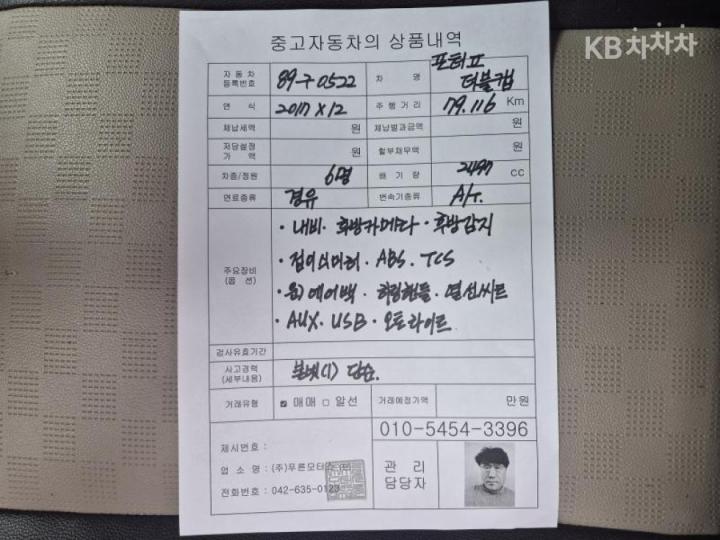 KB차차차
중고자동차의 상품내역
자동차 등록번호 89구0522 차 명 포터Ⅱ 더블캡
연 식 2017 X 12 주행거리 79.116 Km
체납세액 원 체납벌과금액 원
저당설정 가 액 원 할부채무액 원
차종/정원 6명 배 기 량 2497 CC
연료종류 경유 변속기종류 A/T.
주요장비 (옵 션)
· 내비 · 후방카메라 · 후방감지
· 접이식미러 · ABS · TCS
· 운)에어백 · 히팅핸들 · 열선씨트
· AUX · USB · 오토라이트
검사유효기간
사고경력 (세부내용) 본넷(1) 단순.
거래유형 ☑ 매매 □ 알선 거래예정가액 만원
010-5454-3396
제시번호 :
업 소 명 : (주)푸른모터스
전화번호 : 042-635-0123
관 리 담당자